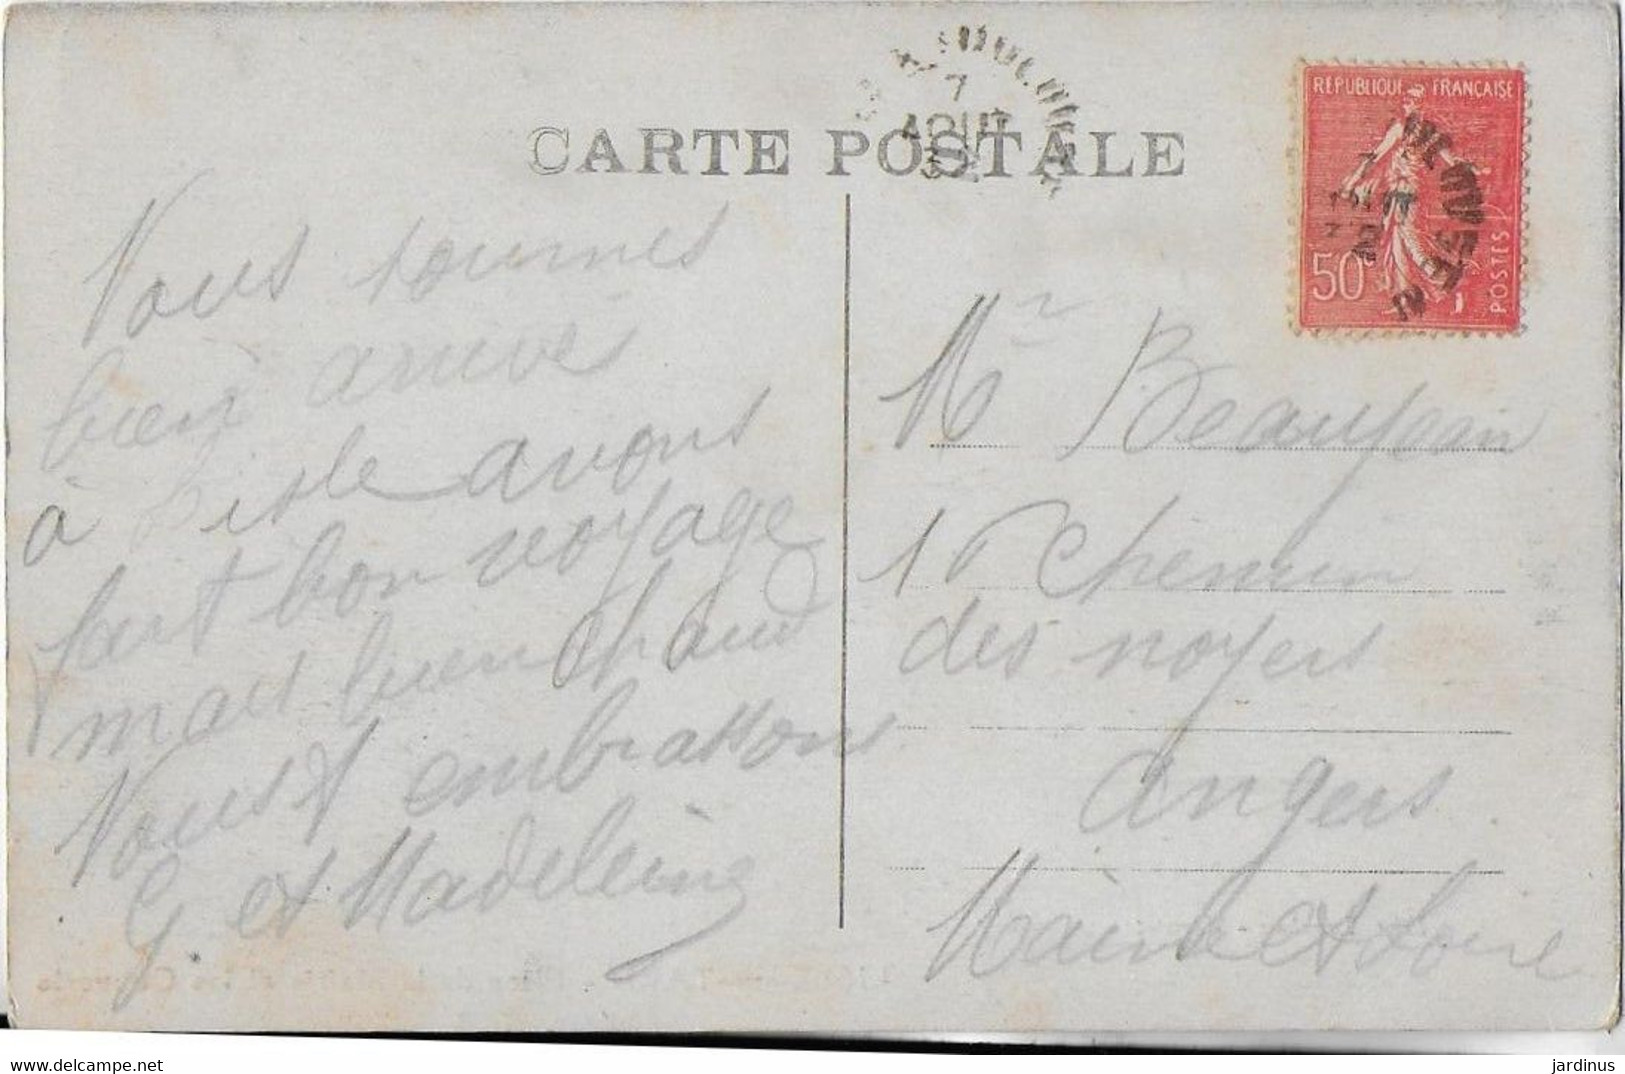 CARTE POSTALE
7
AOUT
RÉPUBLIQUE FRANÇAISE
50c
POSTES
Nous sommes
bien arrivés
à Lisle avons
fait bon voyage
mais bien chaud
Nous embrassons
G. et Madeleine
Mr Beaujean
10 Chemin
des noyers
Angers
Maine et Loire
www.delcampe.net
jardinus